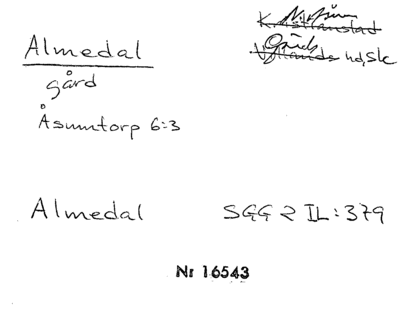 Almedal
gård
Åsumtorp 6:3
Kristianstad
Gärds
Villands hd, Sk
Almedal SGG 2 II:379
Nr 16543